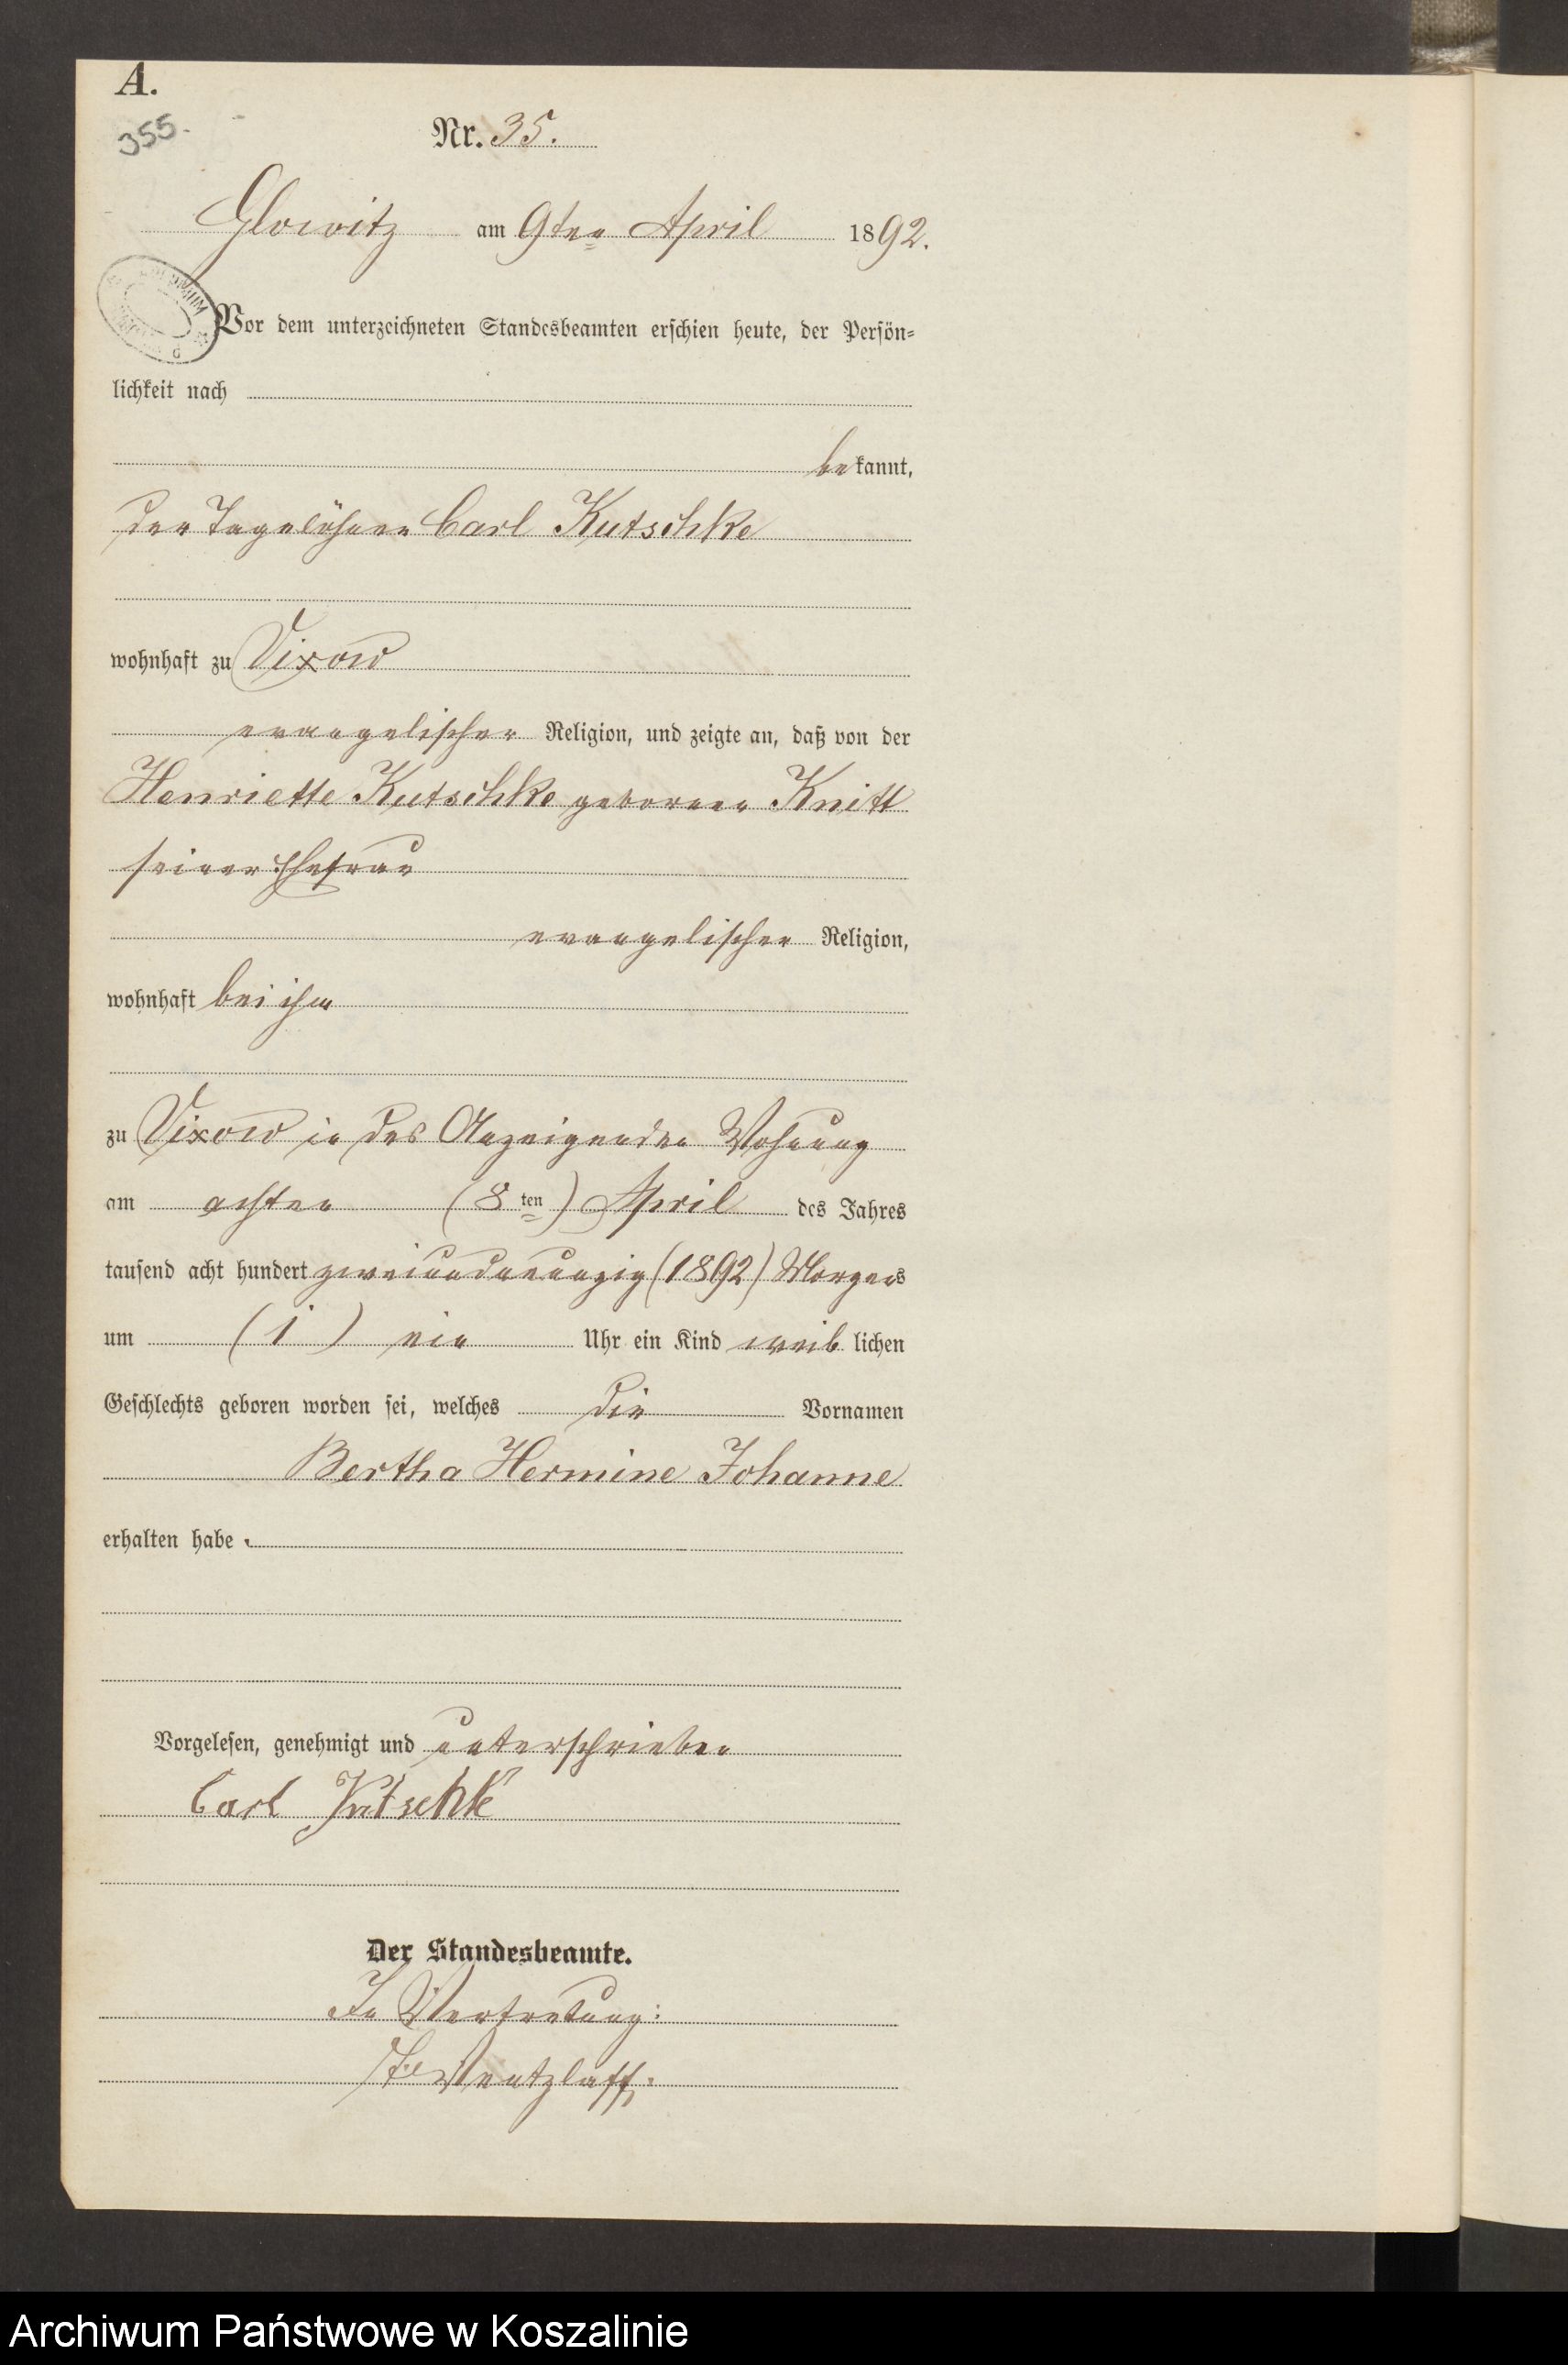 A.
355.
Nr. 35.
Glowitz am 9ten April 1892.
Vor dem unterzeichneten Standesbeamten erschien heute, der Persön-
lichkeit nach
bekannt,
der Tagelöhner Carl Kutschke
wohnhaft zu Vixow
evangelischer Religion, und zeigte an, daß von der
Henriette Kutschke geborenen Knitt
seiner Ehefrau
evangelischer Religion,
wohnhaft bei ihm
zu Vixow in des Anzeigenden Wohnung
am achten (8ten) April des Jahres
tausend acht hundert zweiundneunzig (1892) Morgens
um (1) ein Uhr ein Kind weiblichen
Geschlechts geboren worden sei, welches die Vornamen
Bertha Hermine Johanne
erhalten habe.
Vorgelesen, genehmigt und unterschrieben
Carl Kutschke
Der Standesbeamte.
In Vertretung:
Wentzlaff.
Archiwum Państwowe w Koszalinie